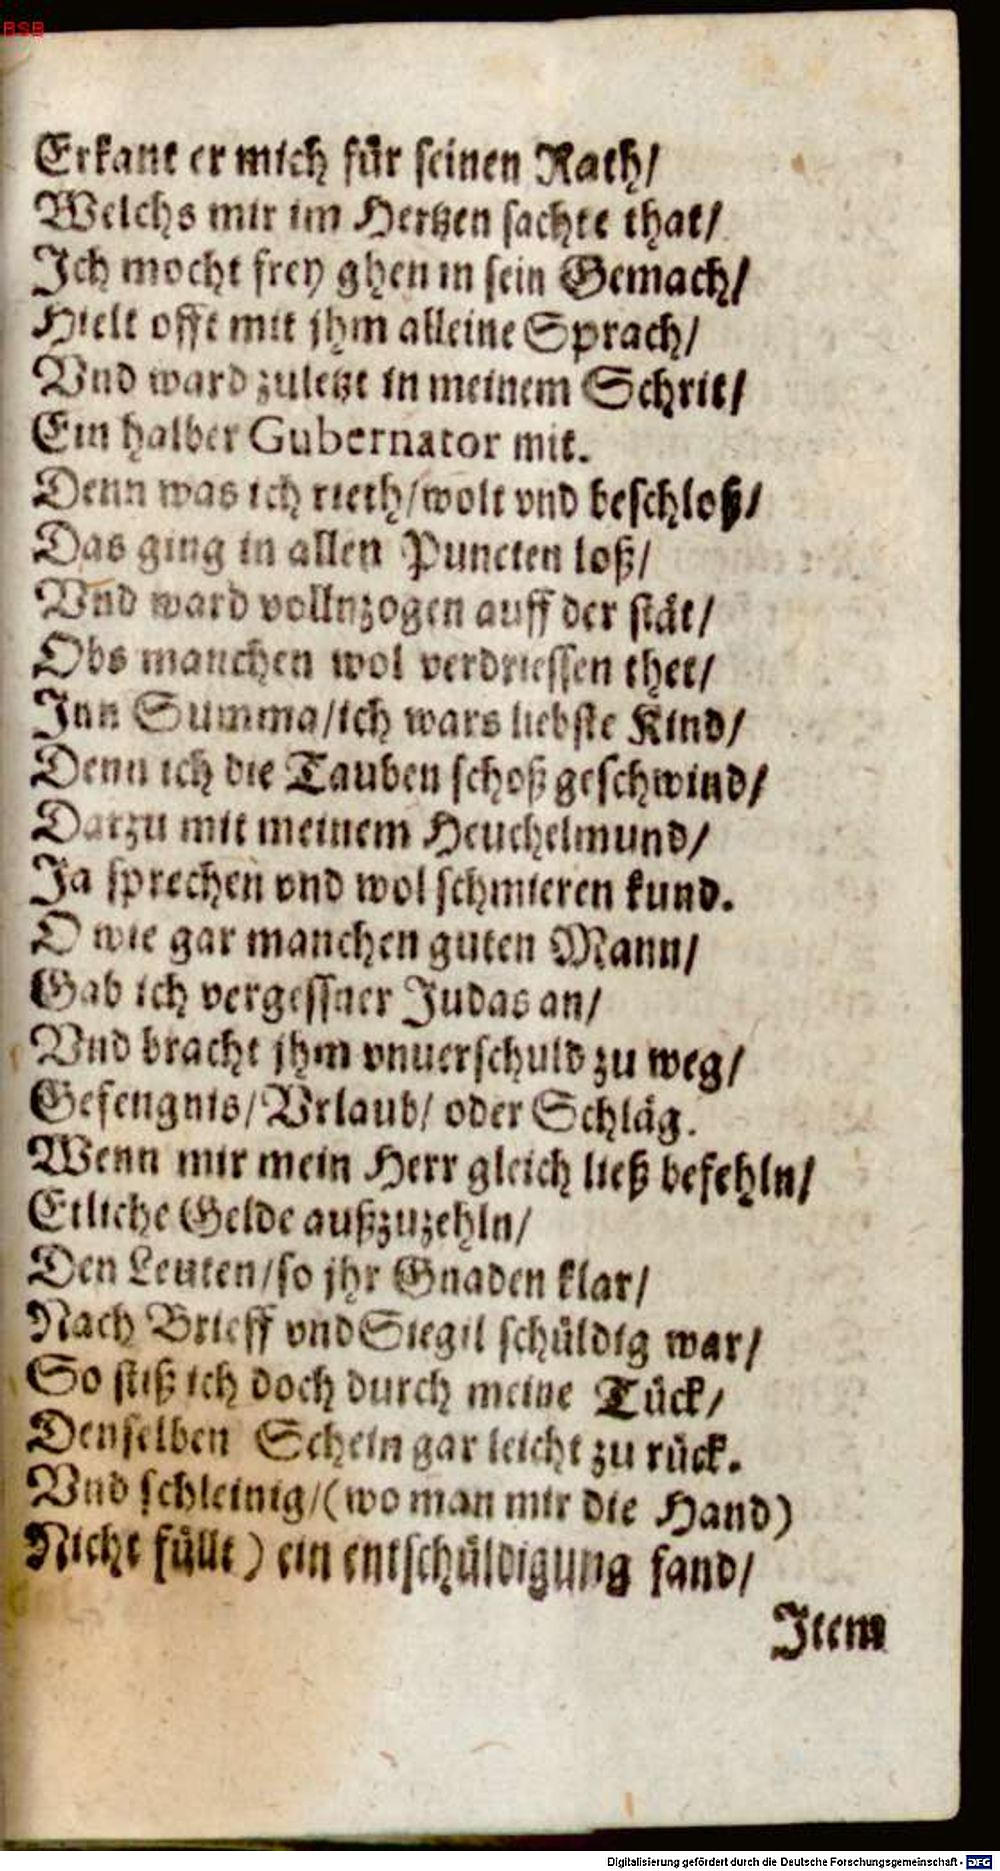 BSB
Erkant er mich für seinen Rath/
Welchs mir im Hertzen sachte that/
Ich mocht frey ghen in sein Gemach/
Hielt offt mit jhm alleine Sprach/
Vnd ward zuletzt in meinem Schrit/
Ein halber Gubernator mit.
Denn was ich rieth/wolt vnd beschloß/
Das ging in allen Puncten loß/
Vnd ward vollnzogen auff der stät/
Obs manchen wol verdriessen thet/
Inn Summa/ich wars liebste Kind/
Denn ich die Tauben schoß geschwind/
Darzu mit meinem Heuchelmund/
Ja sprechen vnd wol schmieren kund.
O wie gar manchen guten Mann/
Gab ich vergessner Judas an/
Vnd bracht jhm vnuerschuld zu weg/
Gefengnis/Vrlaub/ oder Schläg.
Wenn mir mein Herr gleich ließ befehln/
Etliche Gelde außzuzehln/
Den Leuten/so jhr Gnaden klar/
Nach Brieff vnd Siegil schüldig war/
So stiß ich doch durch meine Tück/
Denselben Schein gar leicht zu rück.
Vnd schleinig/(wo man mir die Hand)
Nicht füllt) ein entschüldigung fand/
Item
Digitalisierung gefördert durch die Deutsche Forschungsgemeinschaft - DFG